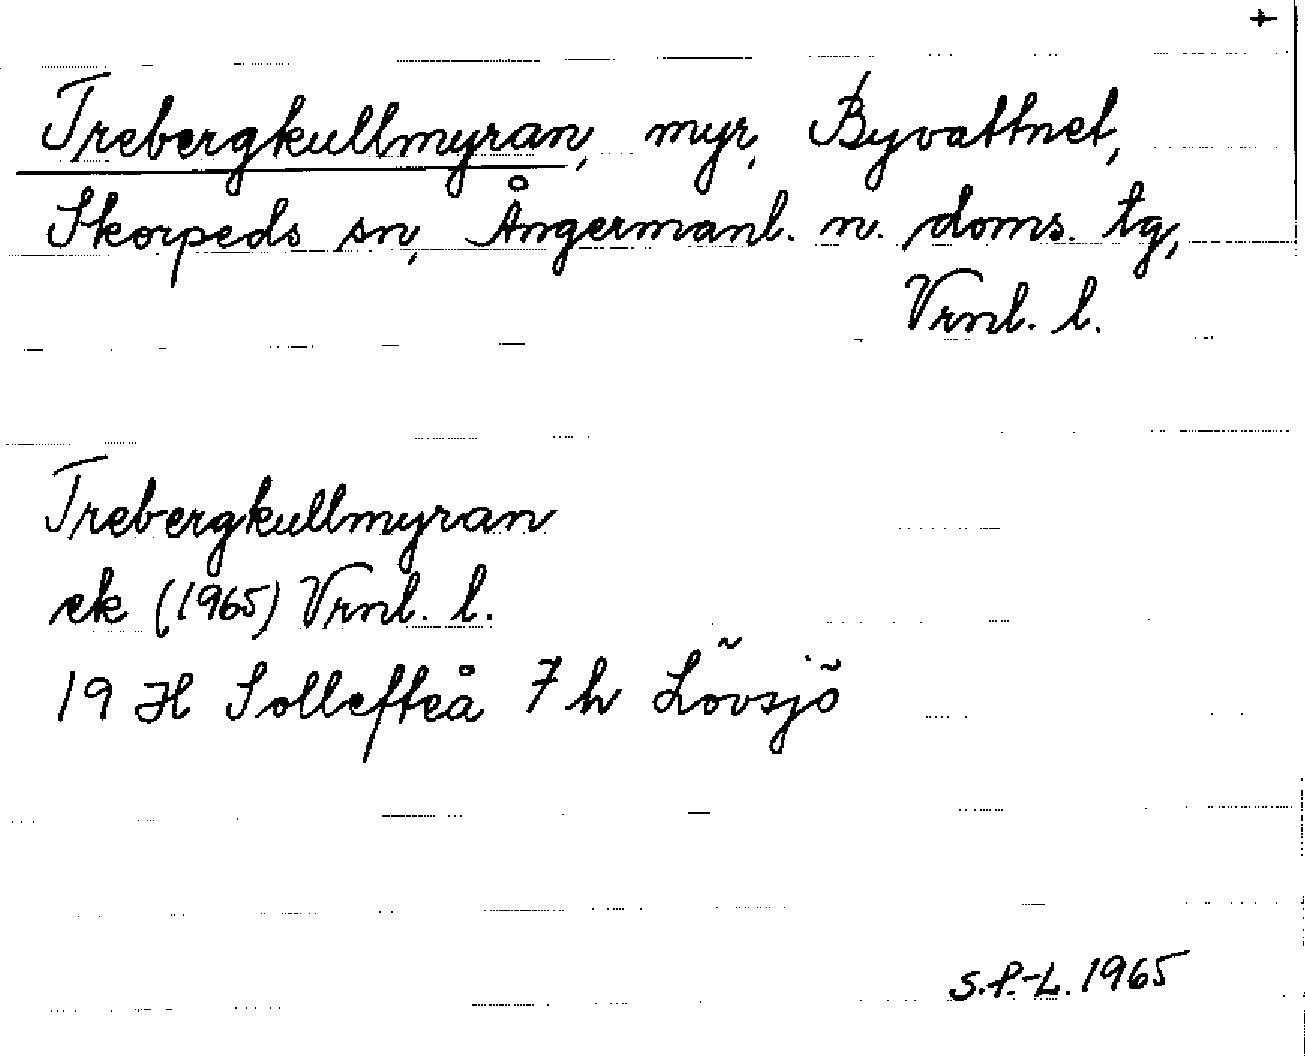 +
Trebergkullmyran, myr, Byvattnet,
Skorpeds sn, Ångermanl. n. doms. tg,
Vrnl. l.
Trebergkullmyran
ek (1965) Vrnl. l.
19 H Sollefteå 7 h Lövsjö
S.P.-L. 1965